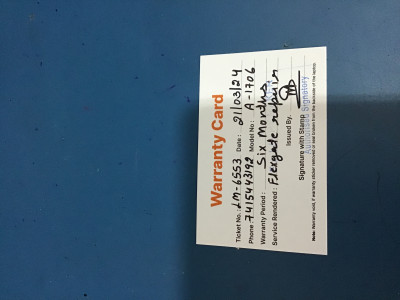 Warranty Card
Ticket No.: LM-6553 Date: 21/03/24
Phone: 7415443192 Model No.: A-1706
Warranty Period: Six Months
Service Rendered: Flexgate repair
Issued By.
Signature with Stamp
Authorised Signatory
Note: Warranty void, if warranty sticker removed or seal broken from the backside of the laptop.